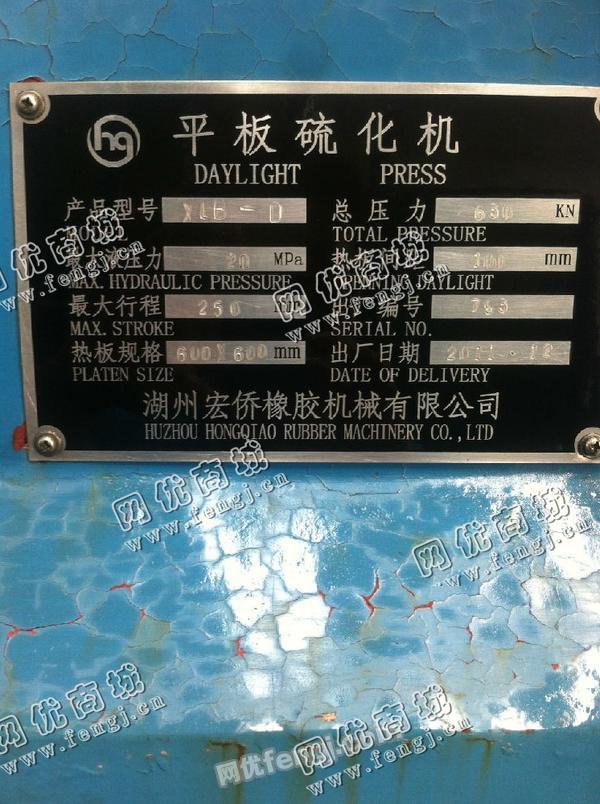 hq 平板硫化机
DAYLIGHT PRESS
产品型号 XLB-D 总压力 630 KN
TOTAL PRESSURE
压力 20 MPa 热板间距 mm
MAX. HYDRAULIC PRESSURE DAYLIGHT
最大行程 250 出厂编号
MAX. STROKE SERIAL NO.
热板规格 600X600 mm 出厂日期
PLATEN SIZE DATE OF DELIVERY
湖州宏侨橡胶机械有限公司
HUZHOU HONGQIAO RUBBER MACHINERY CO.,LTD
网优商城
www.fengj.cn
网优商城
www.fengj.cn
网优商城
www.fengj.cn
网优商城
www.fengj.cn
网优商城
www.fengj.cn
网优商城
www.fengj.cn
网优fengj.cn